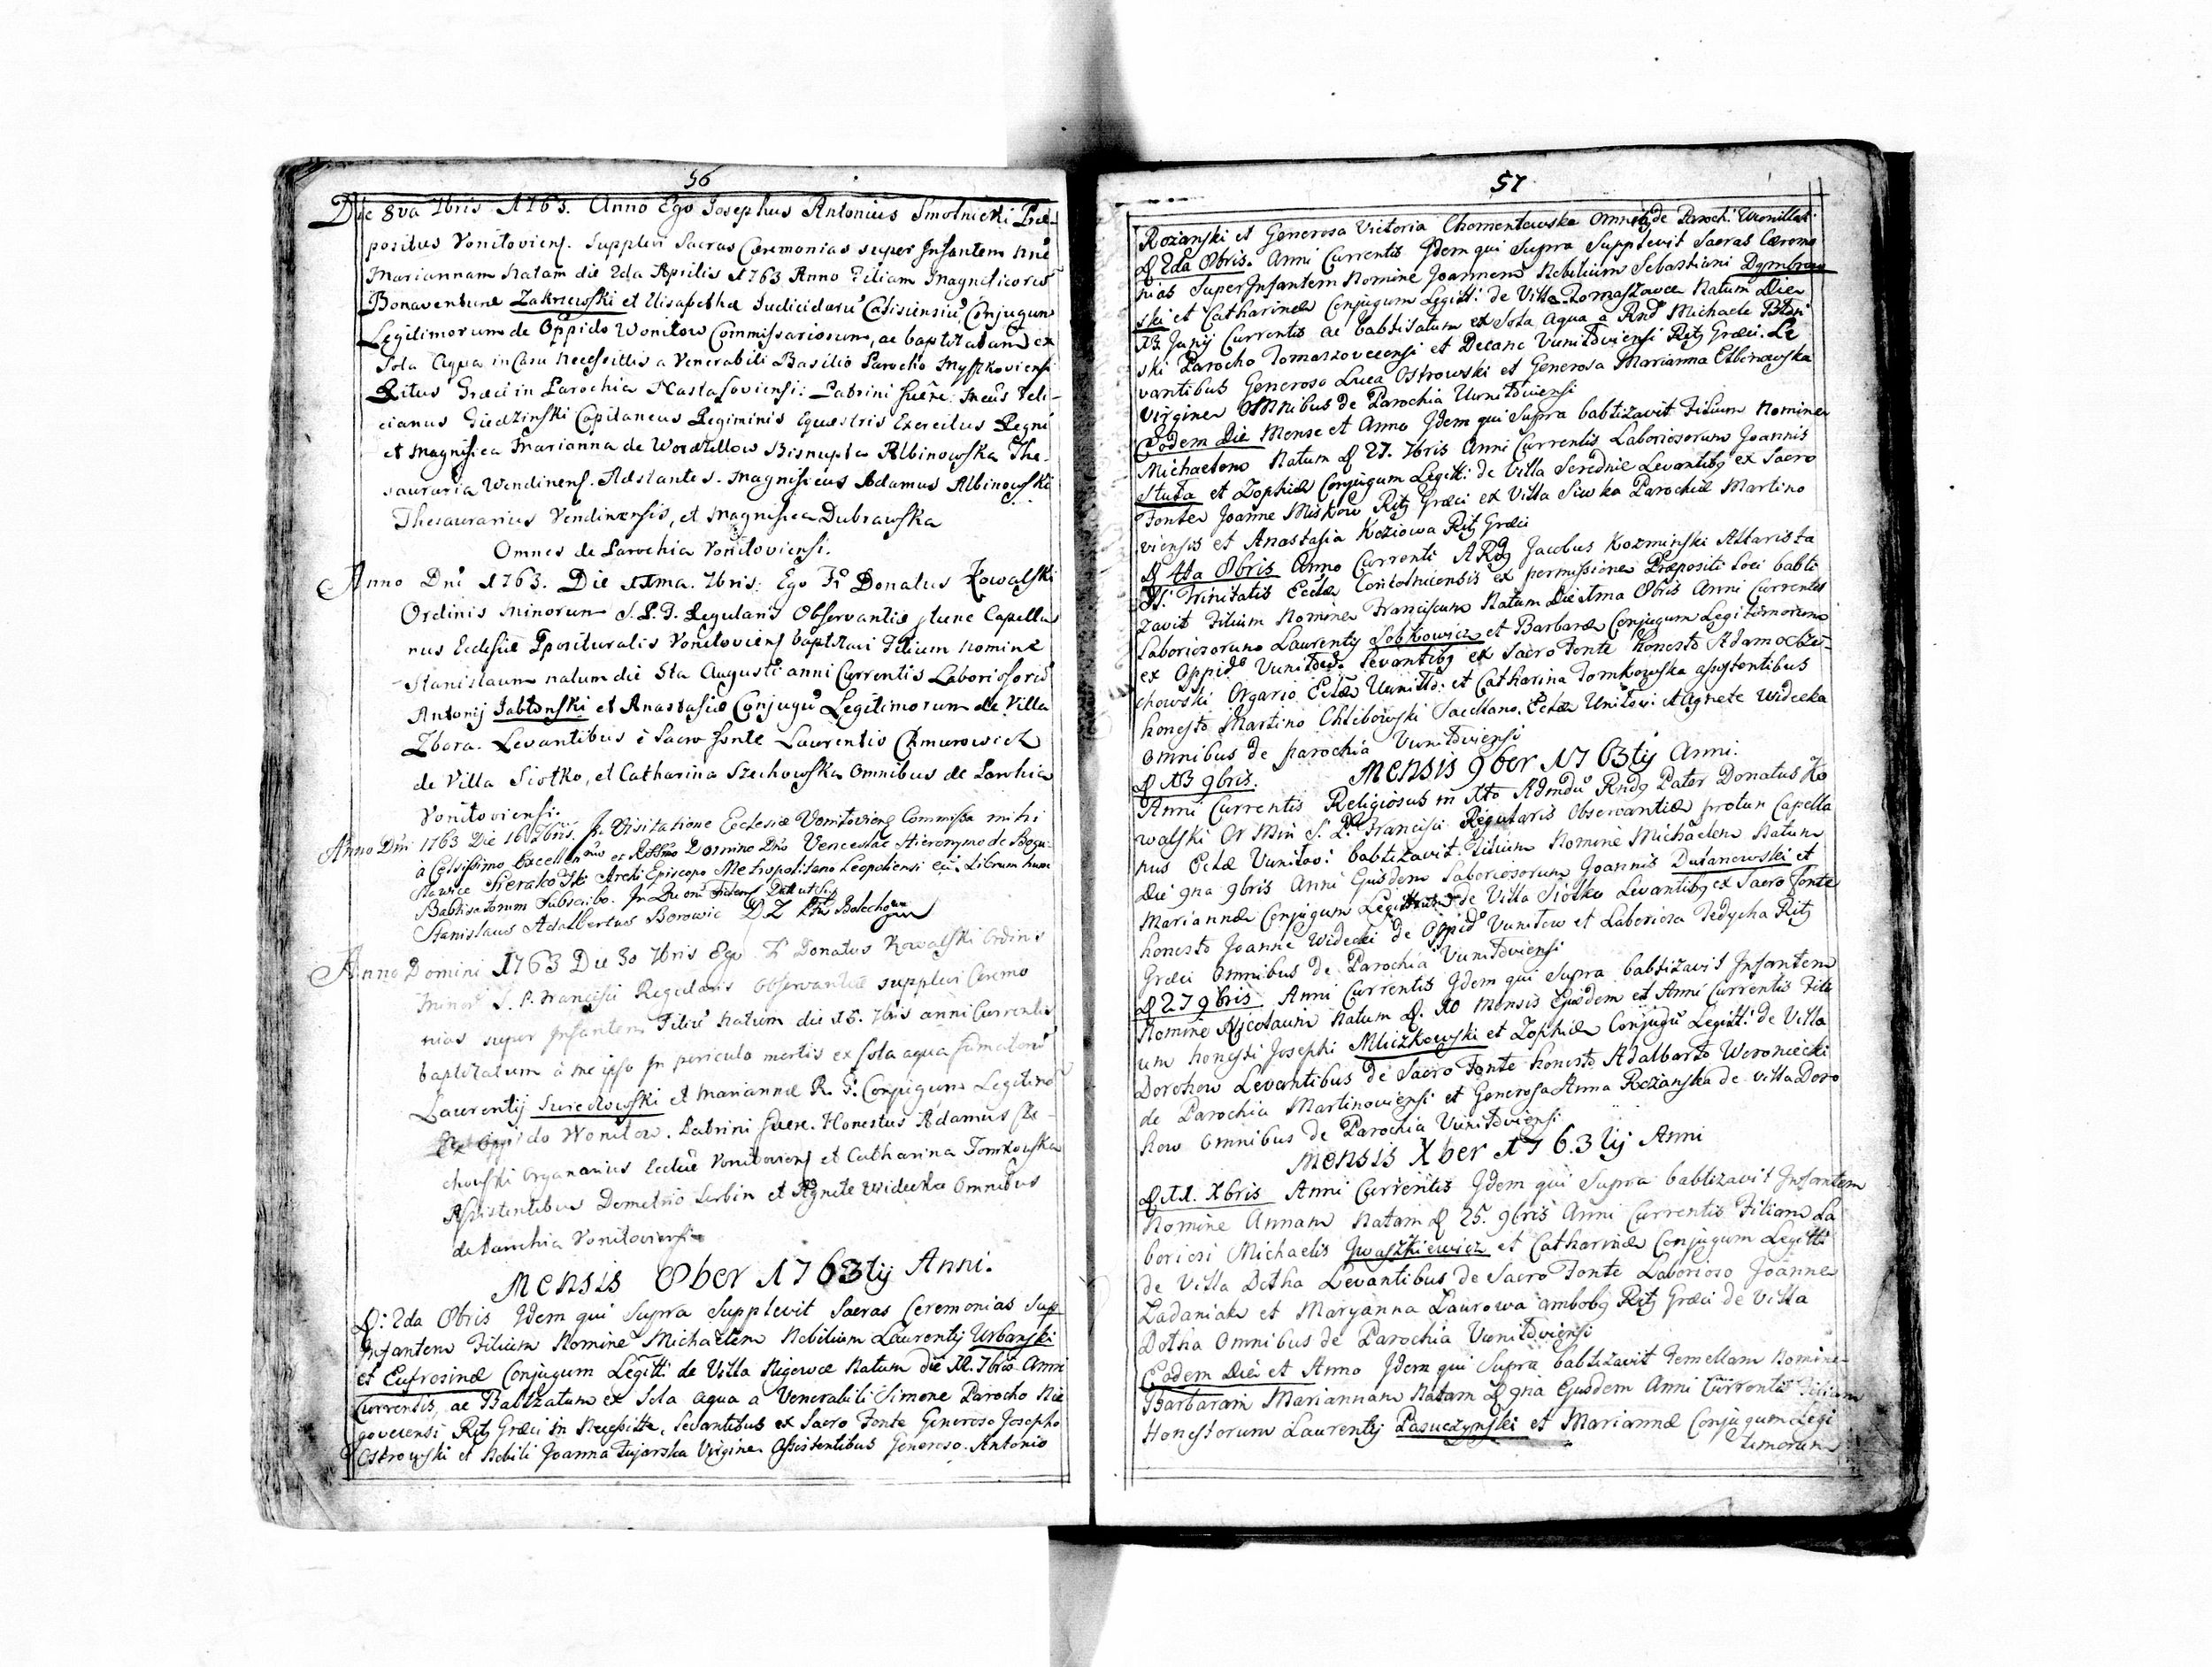 56
Die 8va 7bris 1763. Anno Ego Josephus Antonius Smolnicki Præ-
positus Voniloviens. Supplevi Sacras Cæremonias super Infantem nne
Mariannam natam die 2da Aprilis 1763 Anno Filiam Magnificorū
Bonaventuræ Zakrzewski et Elisabethæ Judicidarū Calisiensiū Conjugum
Legitimorum de Oppido Wonilow Commissariorum, ac baptizatam ex
Sola Aqua in Casu necessitatis a Venerabili Basilio Parocho Myszkoviensi
Ritus Græci in Parochia Nastasoviensi: Patrini fuere: Mcus Feli-
cianus Giedzinski Capitaneus Regiminis Equestris Exercitus Regni
et Magnifica Marianna de Wordtellow Bisnupta Albinowska The-
sauraria Wendinens. Adstantes. Magnificus Adamus Albinowski
Thesaurarius Vendinensis, et Magnifica Dubrawska
Omnes de Parochia Voniloviensi.
Anno Dni 1763. Die 11ma. 7bris: Ego Fr Donatus Kowalski
Ordinis Minorum S. P. F. Regularis Observantiæ p tunc Capella-
nus Ecclesiæ Ppositturalis Voniloviens baptizavi Filium nomine
Stanislaum natum die 5ta Augusti anni Currentis Laboriosorū
Antonij Jablonski et Anastasiæ Conjugū Legitimorum de Villa
Zbora. Levantibus è Sacro fonte Laurentio Chmurowicz
de Villa Siolko, et Catharina Szechowska Omnibus de Parochia
Voniloviensi.
Anno Dni 1763 Die 16 7bris. In Visitatione Ecclesiæ Voniloviens Commissa mihi
à Celsissimo Excellmo et Rdssmo Domino Dno Venceslao Hieronymo de Bogu-
slawice Sierakowski Archi Episcopo Metropolitano Leopoliensi etc. Librum hunc
Babtisatorum Subscribo. In Quorum Fidem Datt ut Supra
Stanislaus Adalbertus Borowic D Z Pptus Bolechovien
Anno Domini 1763 Die 30 7bris Ego Fr Donatus Kowalski Ordinis
Minorū S. P. Francisci Regularis Observantiæ supplevi Ceremo
nias super Infantem Filiū natum die 15. 7bris anni Currentis
baptizatum à me ipso in periculo mortis ex sola aqua
Laurentij Swiechowski et Mariannæ R. G. Conjugum Legitimorū
Ex Oppido Wonilow. Patrini fuere. Honestus Adamus
chowski Organarius Ecclæ Voniloviens et Catharina Tomkowska
Assistentibus Demetrio Serbin et Agnete Widecka Omnibus
de Parochia Voniloviensi
Mensis 8ber 1763tij Anni.
D: 2da 8bris Idem qui Supra Supplevit Sacras Ceremonias Sup
Infantem Filium Nomine Michaëlem Nobilium Laurentij Urbanski
et Eufrosinæ Conjugum Legitt: de Villa Nigowce Natum die 12. 7bris Anni
Currentis, ac Babtzatum ex Sola aqua a Venerabili Simone Parocho Nie
govecensi Ritg Græci in Necessitte, Levantibus ex Sacro Fonte Generoso Josepho
Ostrowski et Nobili Joanna Pujarska Virgine Assistentibus Generoso Antonio
57
Rozanski et Generosa Victoria Chomentowska Omnibg de Paroch: Wonillov:
D 2da 8bris. Anni Currentis Idem qui Supra Supplevit Sacras Cæremo
nias Super Infantem Nomine Joannem Nobilium Sebastiani Dymbrow
ski et Catharinæ Conjugum Legitt: de Villa Tomaszowce Natum Die
13 Junij Currentis ac babtisatum ex Sola aqua a Rnd Michaele
ski Parocho Tomaszovecensi et Decano Vuniloviensi Ritg Græci. Le
vantibus Generoso Luca Ostrowski et Generosa Marianna Elbinowska
Virgine Omnibus de Parochia Vuniloviensi
Eodem Die Mense et Anno Idem qui Supra babtizavit Filium Nomine
Michaelem Natum D 27. 7bris Anni Currentis Laboriosorum Joannis
Stuła et Zophiæ Conjugum Legitt: de Villa Serednie Levantibg ex Sacro
Fonte Joanne Miskow Ritg Græci ex Villa Siwka Parochiæ Martino
viensis et Anastasia Koziowa Ritg Græci
D 4ta 8bris Anno Currenti ARdg Jacobus Kozminski Altarista
SS: Trinitatis Ecclæ ex permissione Præpositi Loci babti
zavit Filium Nomine Franciscum Natum Die 1ma 8bris Anni Currentis
Laboriosorum Laurentij Sobkowicz et Barbaræ Conjugum Legitimorum
ex Oppido Vunilow. Levantibg ex Sacro Fonte Honesto Adamo
chowski Orgario Eclæ Vunillo: et Catharina Tomkowska assistentibus
honesto Martino Chlibowski Sacellano Eclæ Unilov: et Agnete Widecka
omnibus de parochia Vuniloviensi
Mensis 9ber 1763tij Anni.
D 13 9bris.
Anni Currentis Religiosus in Xto Admdū Rndg Pater Donatus Ko
walski Or Min S. P. Francisci Regularis Observantiæ protun Capella
nus Eclæ Vunilov: babtizavit Filium Nomine Michaëlem Natum
Die 9na 9bris Anni Ejusdem Laboriosorum Joannis Dulanowski et
Mariannæ Conjugum Legittm de Villa Siolko Levantibg ex Sacro Fonte
honesto Joanne Widecki de Oppid Vunilow et Laboriosa Fedycha Ritg
Græci Omnibus de Parochia Vuniloviensi
D 27 9bris Anni Currentis Idem qui Supra babtizavit Infantem
Nomine Nicolaum Natum D. 20 Mensis Ejusdem et Anni Currentis Fili
um honesti Josephi Mliczkowski et Zophiæ Conjugū Legitt: de Villa
Dorohow Levantibus de Sacro Fonte honesto Adalbarto Woroniecki
de Parochia Martinoviensi et Generosa Anna Rozanska de villa Doro
how Omnibus de Parochia Vuniloviensi
Mensis Xber 1763tij Anni
D 11. Xbris Anni Currentis Idem qui Supra babtizavit Infantem
Nomine Annam Natam D 25. 9bris Anni Currentis Filiam La
boriosi Michaelis Jwaszkiewicz et Catharinæ Conjugum Legitti
de Villa Dotha Levantibus de Sacro Fonte Laborioso Joanne
Ladaniak et Maryanna Laurowa ambobg Ritg Græci de Villa
Dotha Omnibus de Parochia Vuniloviensi
Eodem Die et Anno Idem qui Supra babtizavit Femellam Nomine
Barbaram Mariannam Natam D 9na Ejusdem Anni Currentis Filiam
Honestorum Laurentij Pasuczynski et Mariannæ Conjugum Legi
timorum